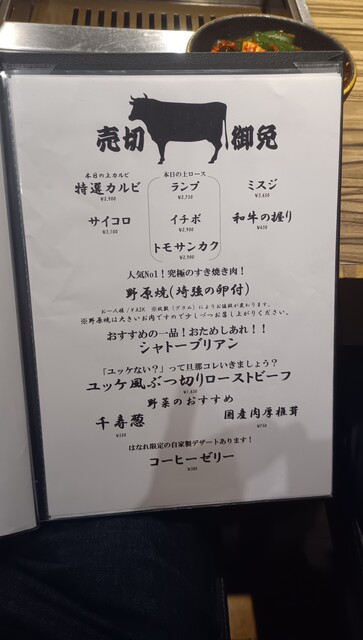 売切御免
本日の上カルビ
特選カルビ
¥2,900
本日の上ロース
ランプ
¥2,750
ミスジ
サイコロ
イチボ
¥2,900
和牛の握り
トモサンカク
¥2,900
人気No1！究極のすき焼き肉！
野原焼(埼強の卵付)
※野原焼は大きいお肉ですのでナしづつお召し上がりください。
おすすめの一品！おためしあれ！！
シャトーブリアン
「ユッケない？」って旦那コレいきましょう？
ユッケ風ぶつ切りローストビーフ
野菜のおすすめ
千寿葱
国産肉厚椎茸
はなれ限定の自家製デザートあります！
コーヒーゼリー